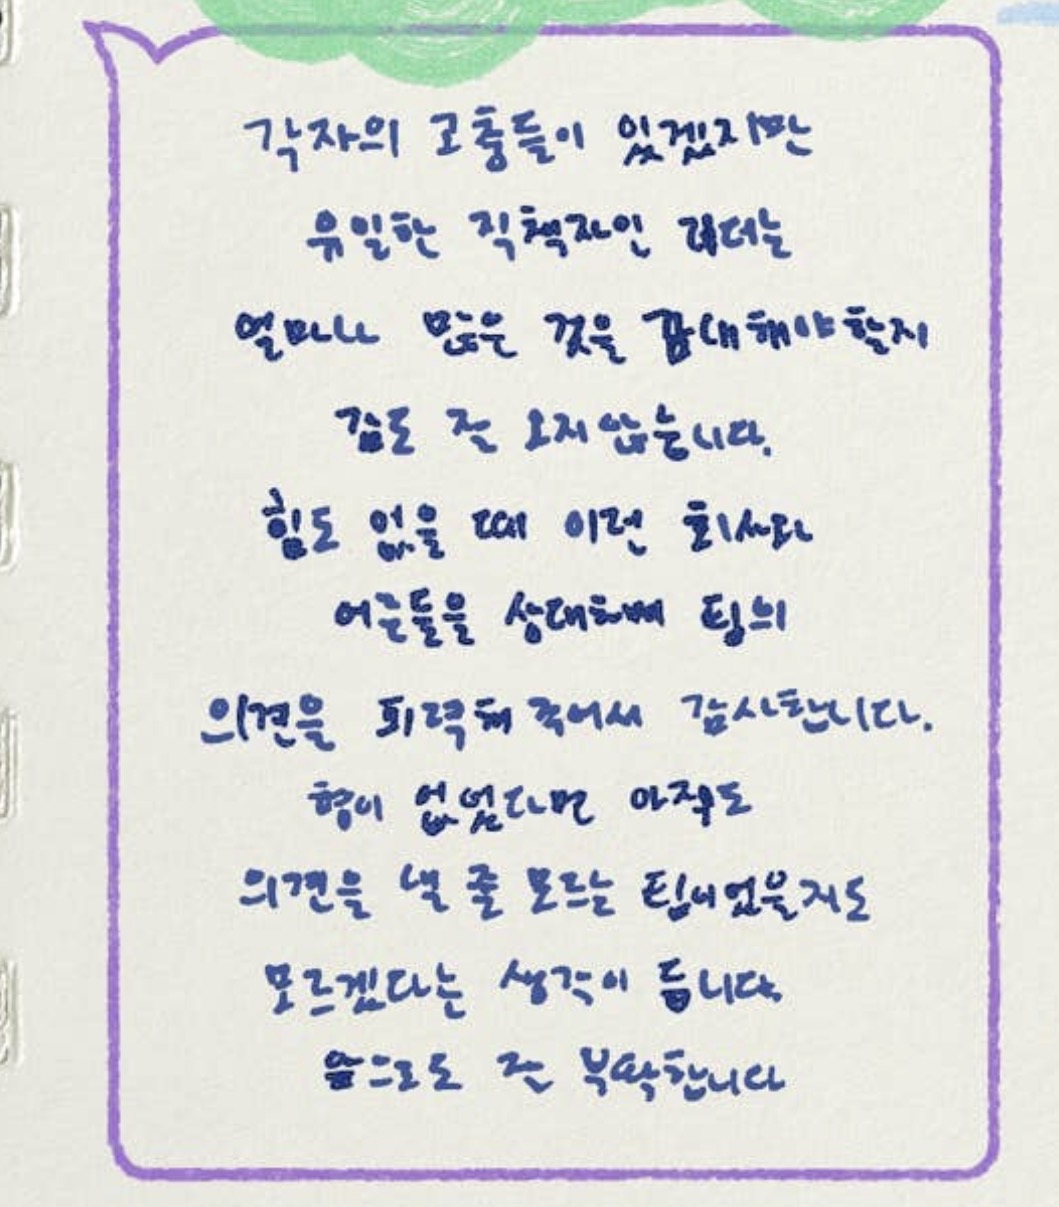 각자의 고충들이 있겠지만
유일한 직책자인 리더는
얼마나 많은 것을 감내해야할지
감도 잘 오지않습니다.
힘도 없을 때 이런 회사라
어른들을 상대하며 팀의
의견을 피력해 주어서 감사합니다.
형이 없었다면 아직도
의견을 낼 줄 모르는 팀이었을지도
모르겠다는 생각이 듭니다.
앞으로도 잘 부탁합니다